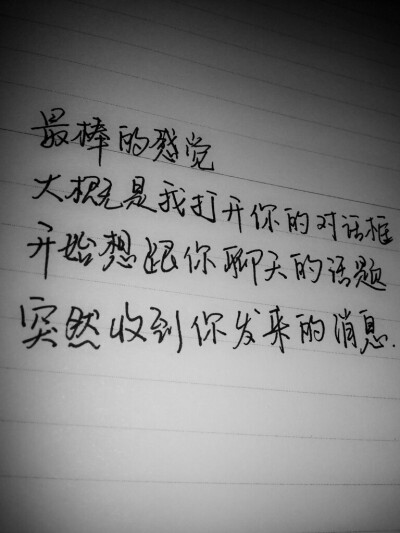 最棒的感觉
大概是我打开你的对话框
开始想跟你聊天的话题
突然收到你发来的消息.